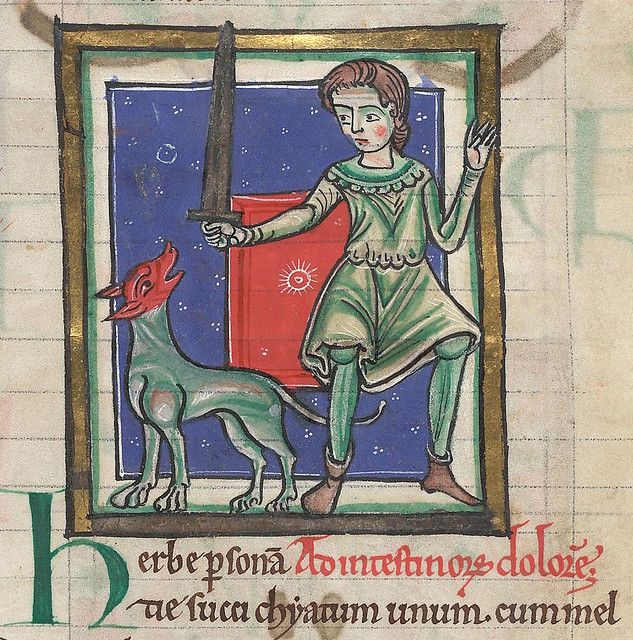 herbe ꝑsonā Ad intestinoꝝ dolorē;
tie succi chyatum unum. cum mel